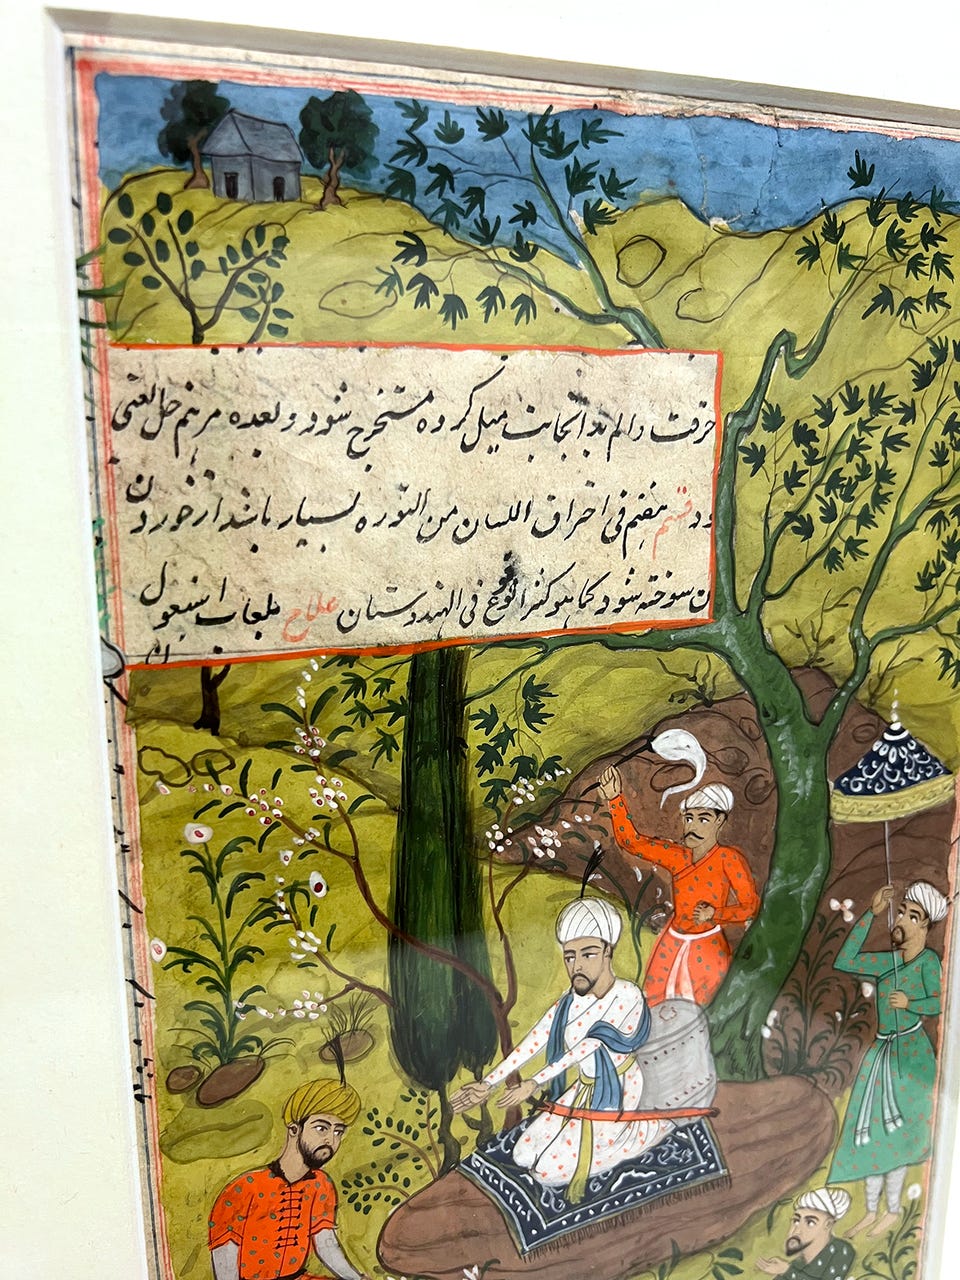 حرقت و الم بدانجانب میل کرده مستخرج شود و بعده مرهم حل لعتی
ود قسم هفتم فی احراق اللسان من النوره بسیار باشد از خوردن
ن سوخته شود کما هو کثیر الوقوع فی الهندوستان علاج بلعاب اسبغول